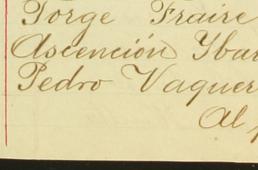 Jorge Fraire
Ascención Ybar
Pedro Vaquer
Al